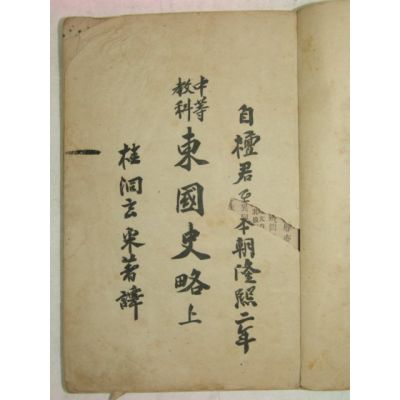 自檀君至本朝隆熙二年
中等
教科
東國史略上
桂洞玄采著譯